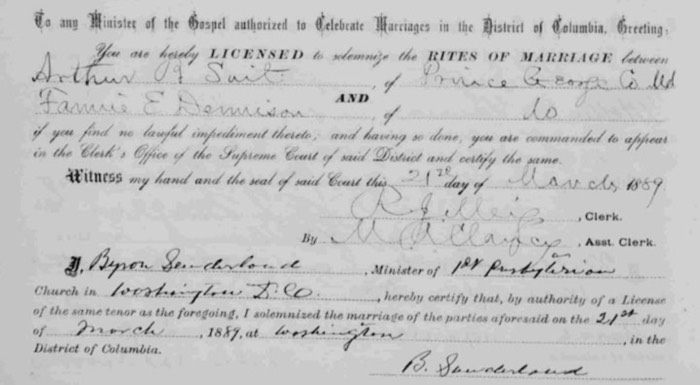 To any Minister of the Gospel authorized to Celebrate Marriages in the District of Columbia, Greeting:
You are hereby LICENSED to solemnize the RITES OF MARRIAGE between
Arthur Suit of Prince George Co Md
AND
Fannie E Dennison of do
if you find no lawful impediment thereto; and having so done, you are commanded to appear
in the Clerk's Office of the Supreme Court of said District and certify the same.
Witness my hand and the seal of said Court this 21st day of March 1889.
R J Meigs, Clerk.
By M A Clancy, Asst. Clerk.
I, Byron Sunderland, Minister of 1st Presbyterian
Church in Washington D. C., hereby certify that, by authority of a License
of the same tenor as the foregoing, I solemnized the marriage of the parties aforesaid on the 21st day
of March, 1889, at Washington, in the
District of Columbia.
B. Sunderland